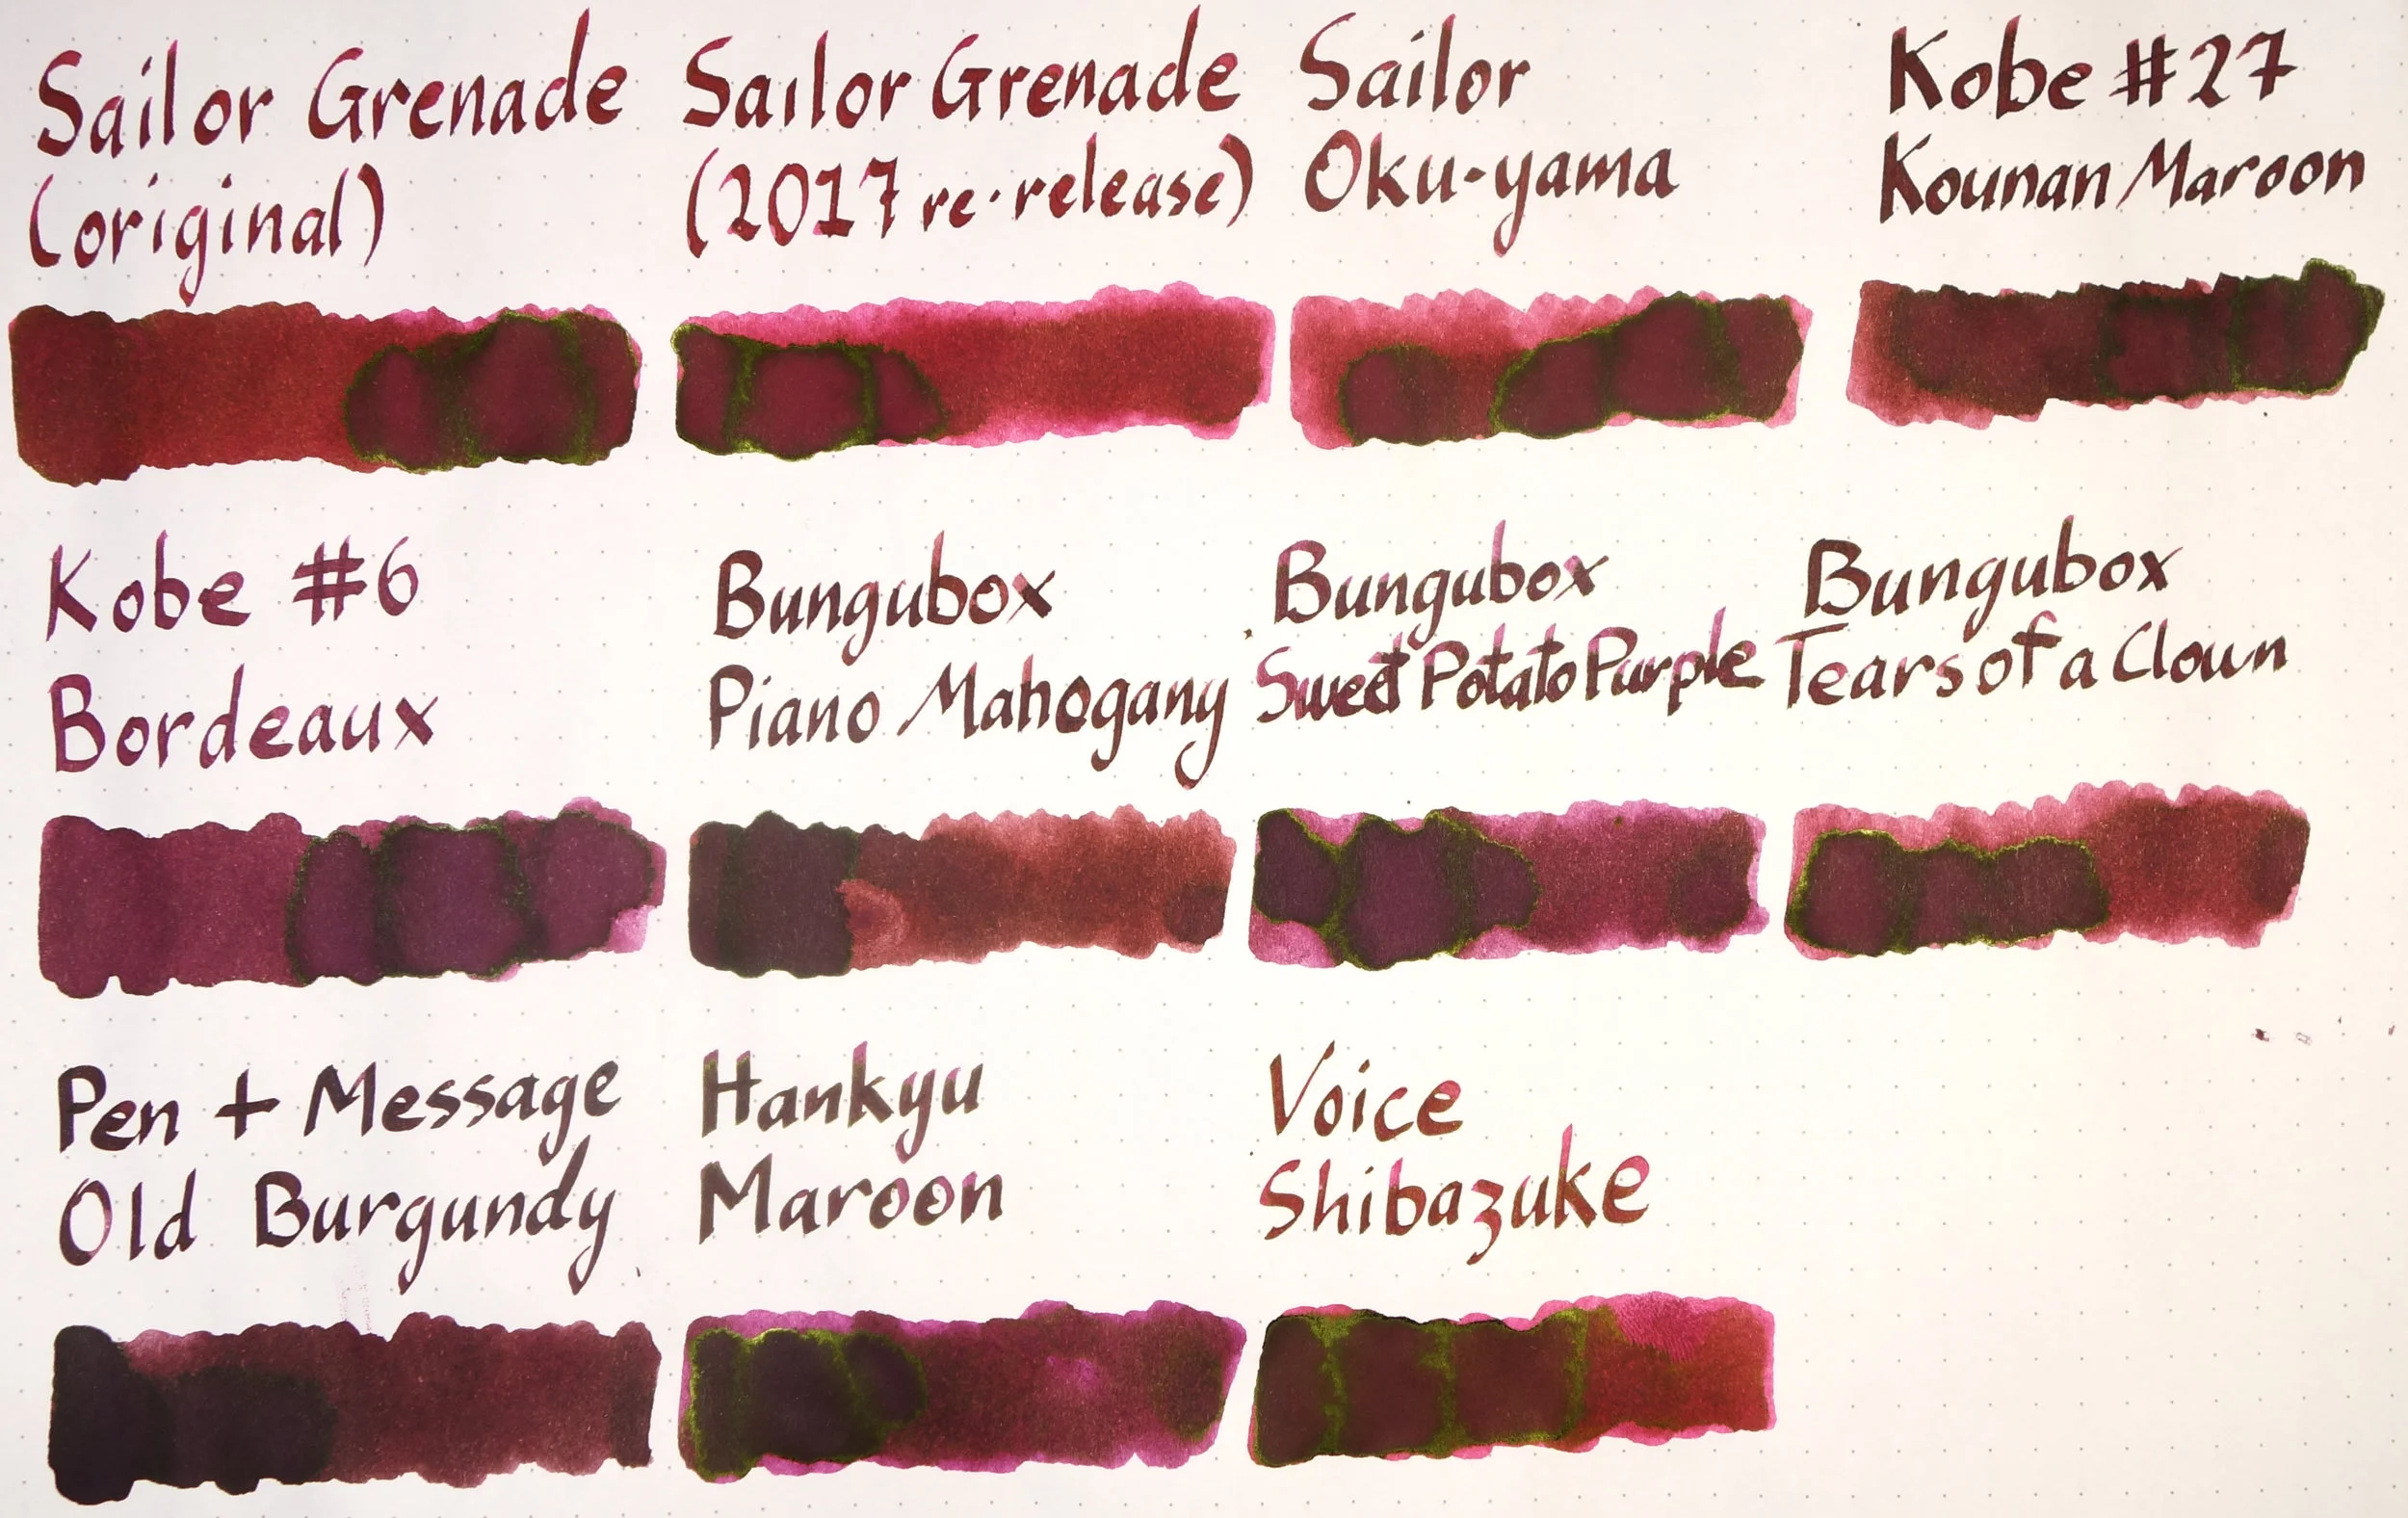 Sailor Grenade
(original)
Sailor Grenade
(2017 re-release)
Sailor
Oku-yama
Kobe #27
Kounan Maroon
Kobe #6
Bordeaux
Bungubox
Piano Mahogany
Bungubox
Sweet Potato Purple
Bungubox
Tears of a Clown
Pen + Message
Old Burgundy
Hankyu
Maroon
Voice
Shibazuke